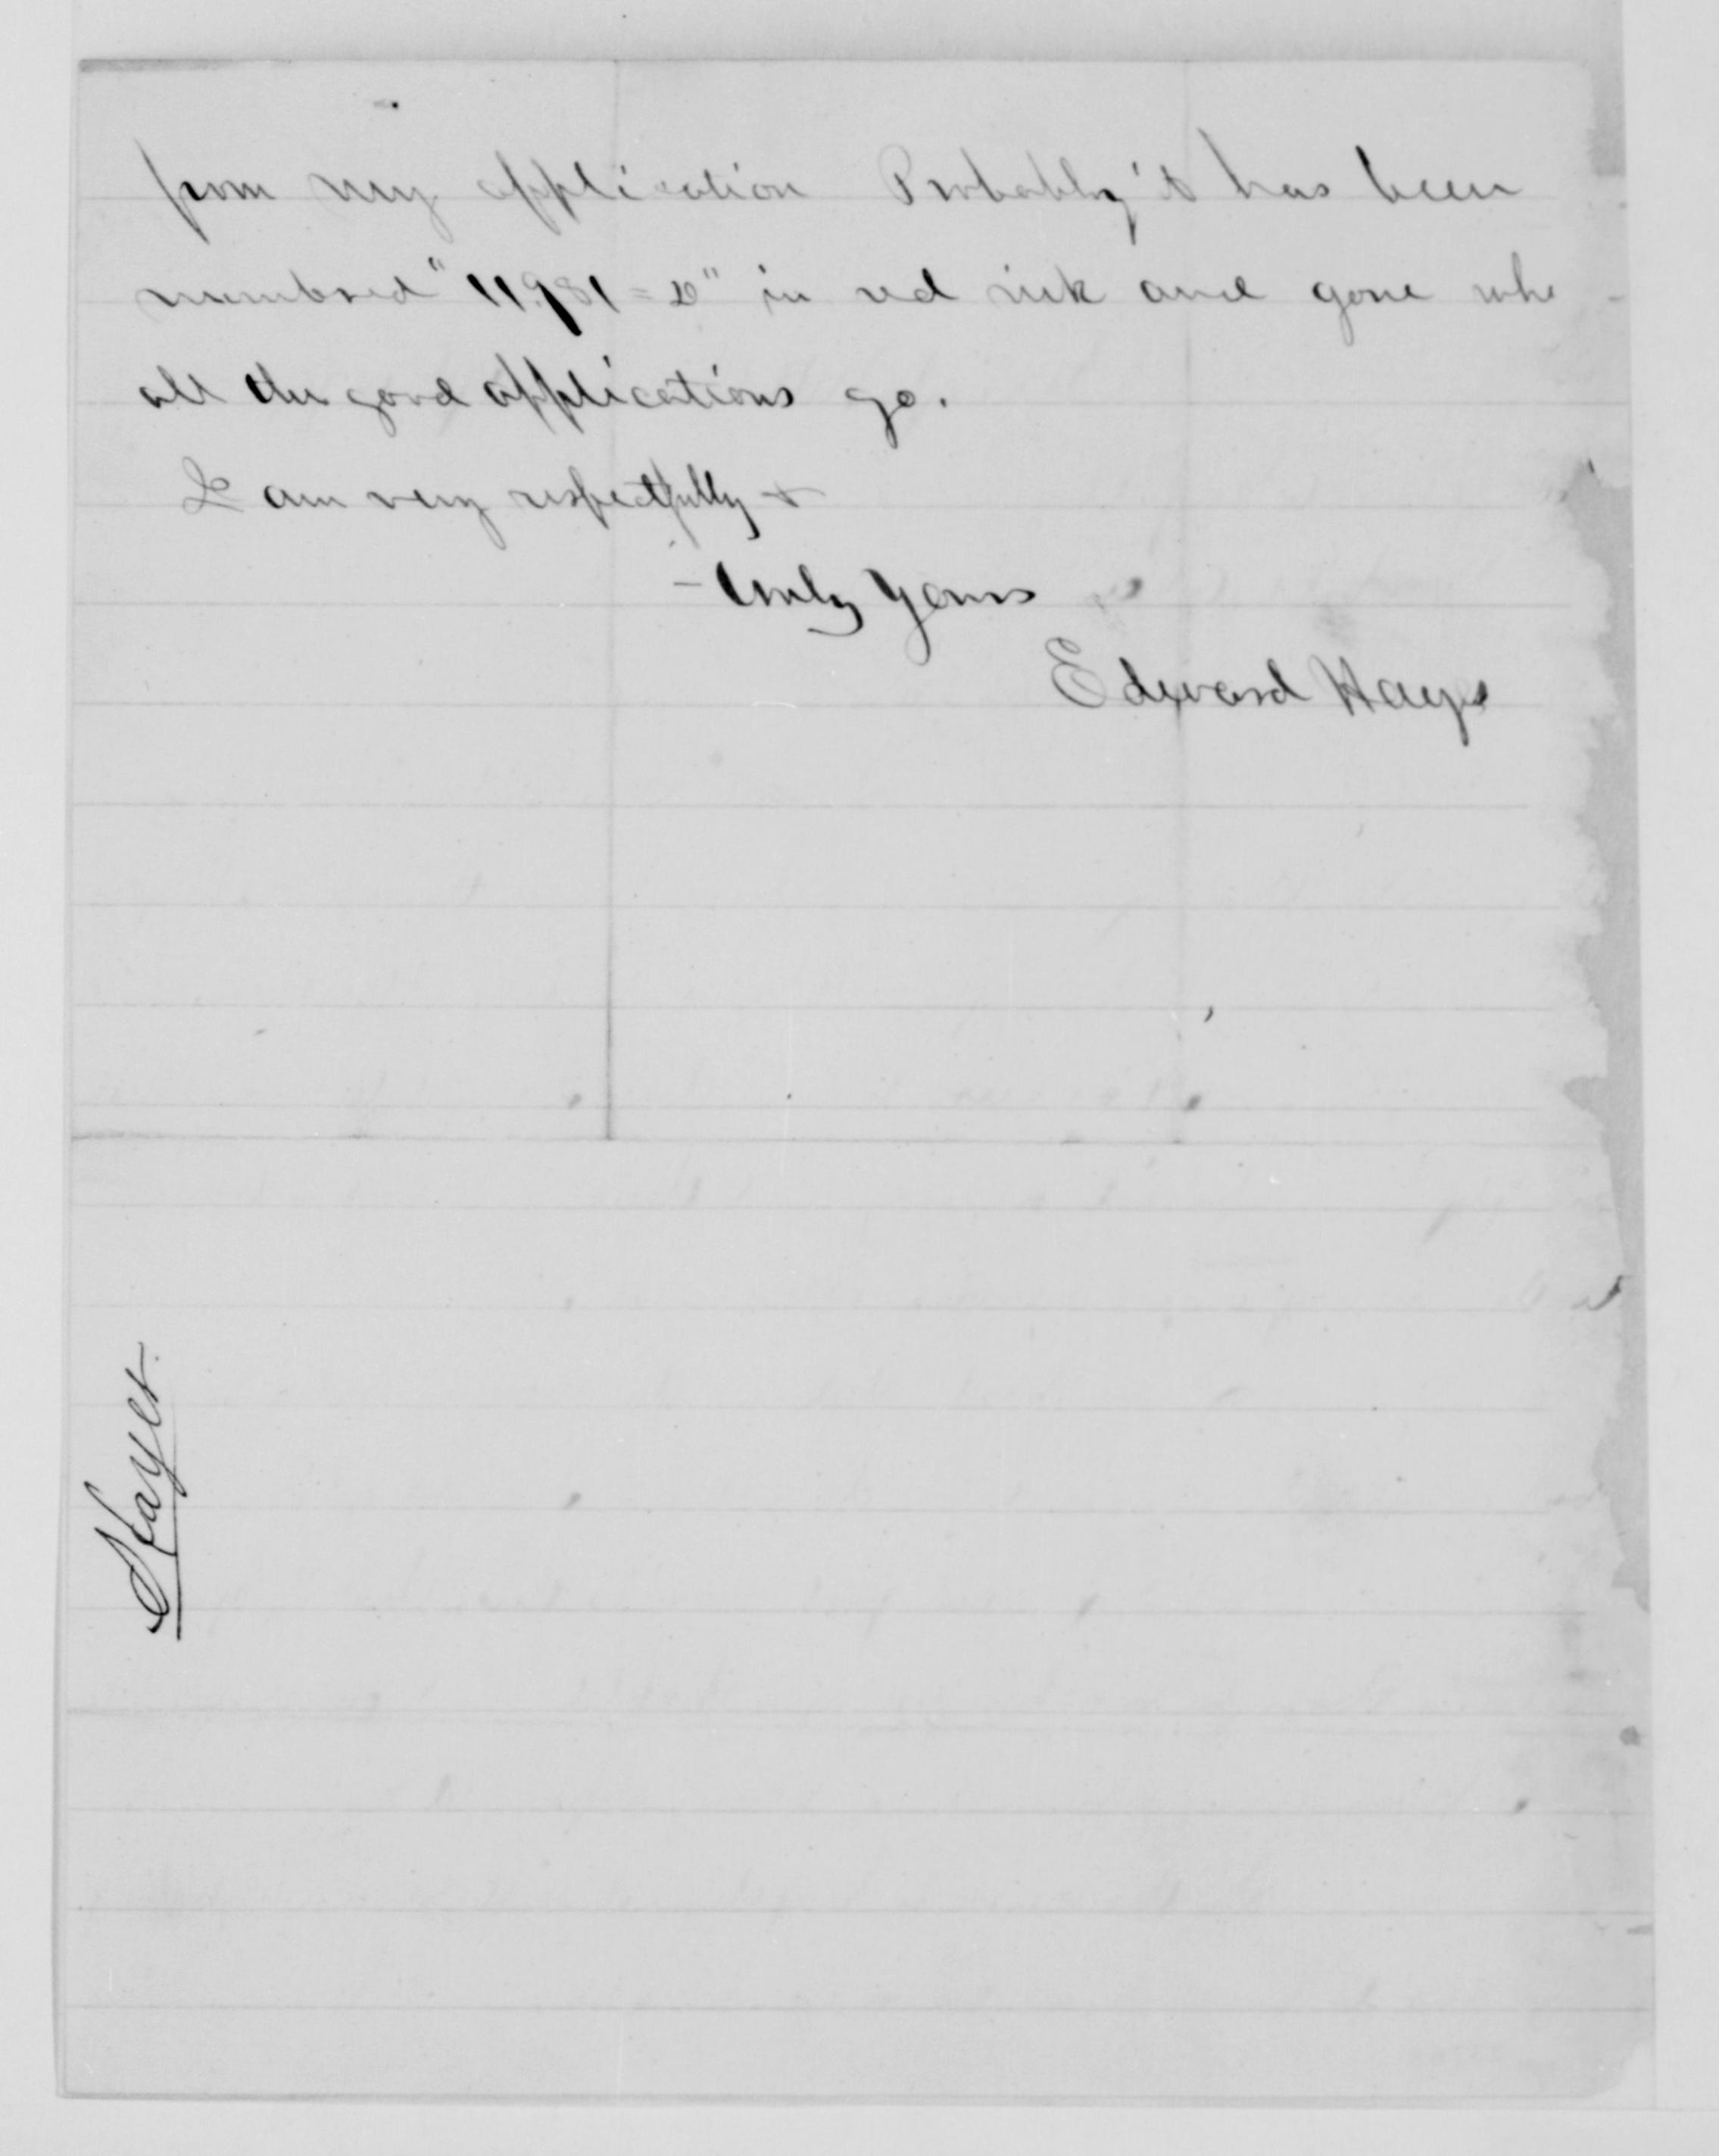 from my application Probably it has been
numbered " 11981 = " in red ink and gone whe
all the good applications go.
I am very respectfully &
- truly yours
Edward Hays
Hayes